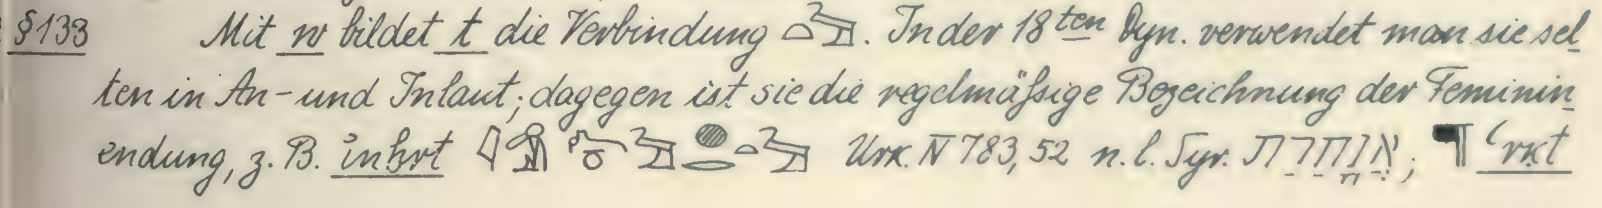 §133 Mit w bildet t die Verbindung 𓏏𓅯. In der 18ten Dyn. verwendet man sie sel
ten in An- und Inlaut; dagegen ist sie die regelmäßige Bezeichnung der Feminin
endung, z. B. Urk. IV 783, 52 n. l. Syr. ¶ ʿrkt